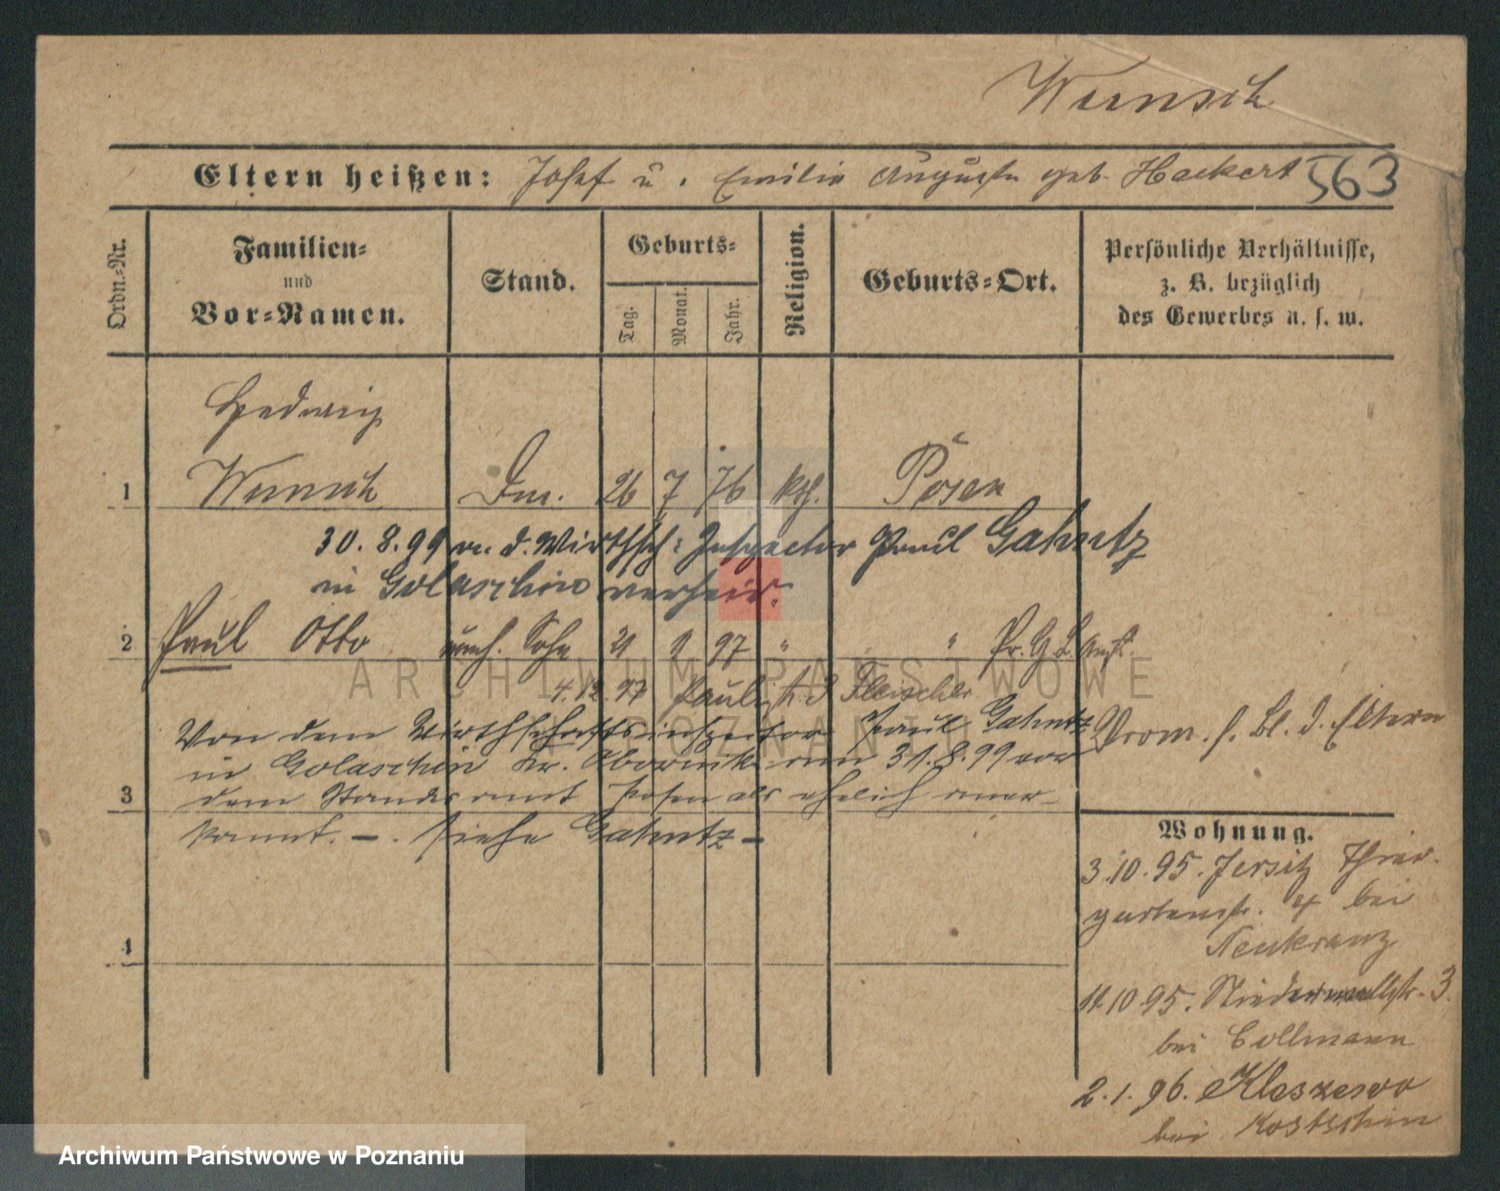 Wunsch
Eltern heißen: Josef u. Emilie Auguste geb. Heckert 563
Ordn.-Nr.
Familien-
und
Vor-Namen.
Stand.
Geburts-
Tag.
Monat.
Jahr.
Religion.
Geburts-Ort.
Persönliche Verhältnisse,
z. B. bezüglich
des Gewerbes u. s. w.
Hedwig
1 Wunsch 26 7 76 kth. Posen
30. 8. 99 d. Wirthsch: Inspector Paul Gahntz
in Golaschin verheir.
2 Paul Otto uneh. Sohn 21 9 97 " "
4. 12. 97 Fleischer
Von dem Wirthschaftsinspector Paul Gahntz
in Golaschin Kr. Obornik am 31. 8. 99 vor
3 dem Standesamt Posen als ehelich aner-
kannt. -. siehe Gahntz -
d. Eltern
Wohnung.
3. 10. 95. Jersitz Thier-
gartenstr. 4 bei
Neukranz
11. 10 95. Niederwallstr. 3.
bei Collmann
4
2. 1. 96. Kleszewo
bei Kostschin
ARCHIWUM PAŃSTWOWE
W POZNANIU
Archiwum Państwowe w Poznaniu